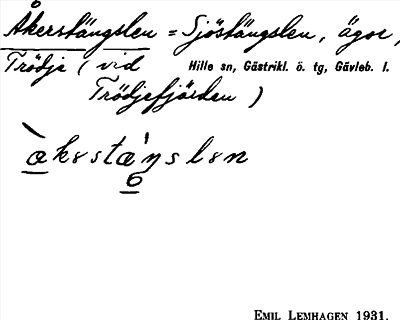 Åkerstängslen = Sjöstängslen, ägor,
Trödje (vid Hille sn, Gästrikl. ö. tg, Gävleb. l.
Trödjefjärden)
EMIL LEMHAGEN 1931.